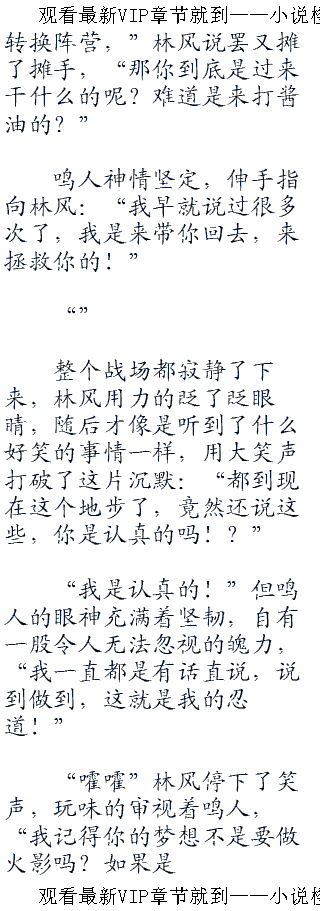 观看最新VIP章节就到——小说检
转换阵营，”林风说罢又摊
了摊手，“那你到底是过来
干什么的呢？难道是来打酱
油的？”
鸣人神情坚定，伸手指
向林风：“我早就说过很多
次了，我是来带你回去，来
拯救你的！”
“”
整个战场都寂静了下
来，林风用力的眨了眨眼
睛，随后才像是听到了什么
好笑的事情一样，用大笑声
打破了这片沉默：“都到现
在这个地步了，竟然还说这
些，你是认真的吗！？”
“我是认真的！”但鸣
人的眼神充满着坚韧，自有
一股令人无法忽视的魄力，
“我一直都是有话直说，说
到做到，这就是我的忍
道！”
“嚯嚯”林风停下了笑
声，玩味的审视着鸣人，
“我记得你的梦想不是要做
火影吗？如果是
观看最新VIP章节就到——小说检